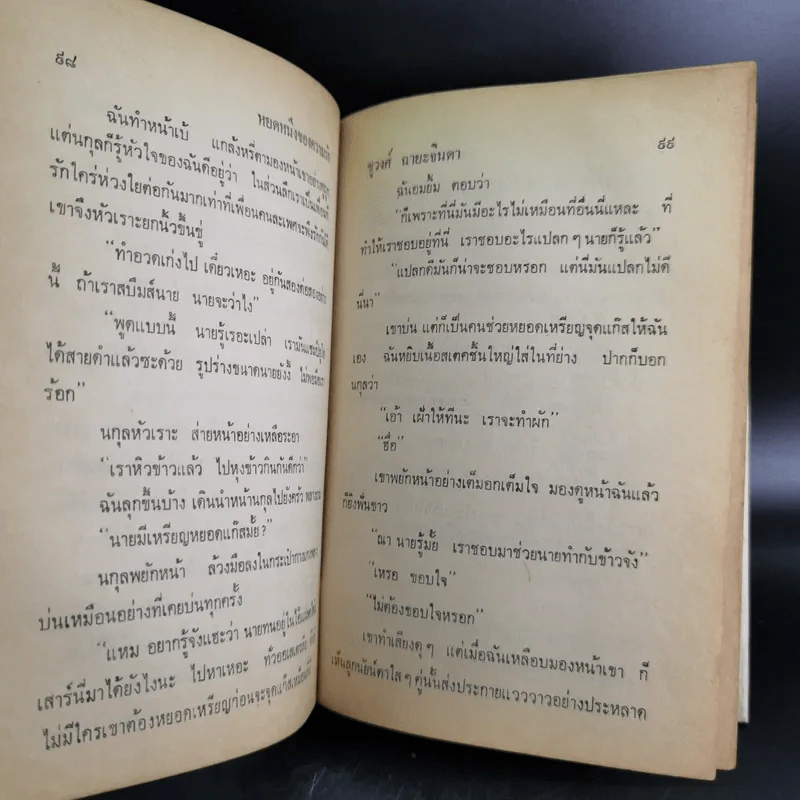 ๙๘
หยดหนึ่งของความรัก
ฉันทำหน้าเบ้ แกล้งหรี่ตามองหน้าเขาอย่าง
แต่นกุลก็รู้หัวใจของฉันดีอยู่ว่า ในส่วนลึกเราเป็นเพื่อนที่
รักใคร่ห่วงใยต่อกันมากเท่าที่เพื่อนคนละเพศจะพึงรักกันได้
เขาจึงหัวเราะยกนิ้วขึ้นขู่
“ทำอวดเก่งไป เดี๋ยวเหอะ อยู่กันสองต่อสองอย่าง
นี้ ถ้าเราสบึมส์นาย นายจะว่าไง”
“พูดแบบนี้ นายรู้เรอะเปล่า เรามัน
ได้สายดำแล้วซะด้วย รูปร่างขนาดนายยังงี้ ไม่
ร้อก”
นกุลหัวเราะ ส่ายหน้าอย่างเหลือระอา
“เราหิวข้าวแล้ว ไปหุงข้าวกินกันดีกว่า”
ฉันลุกขึ้นบ้าง เดินนำหน้านกุลไปยังครัว
“นายมีเหรียญหยอดแก๊สมั้ย?”
นกุลพยักหน้า ล้วงมือลงในกระเป๋ากางเกง
บ่นเหมือนอย่างที่เคยบ่นทุกครั้ง
“แหม อยากรู้จังแฮะว่า นายทนอยู่ใน
เสาร์นี่มาได้ยังไงนะ ไปหาเหอะ ทั่วออสเตรเลีย
ไม่มีใครเขาต้องหยอดเหรียญก่อนจะจุดแก๊สเหมือน
ชูวงศ์ ฉายะจินดา
๙๙
ฉันอมยิ้ม ตอบว่า
“ก็เพราะที่นี่มันมีอะไรไม่เหมือนที่อื่นนี่แหละ ที่
ทำให้เราชอบอยู่ที่นี่ เราชอบอะไรแปลก ๆ นายก็รู้แล้ว”
“แปลกดีมันก็น่าจะชอบหรอก แต่นี่มันแปลกไม่ดี
นี่นา”
เขาบ่น แต่ก็เป็นคนช่วยหยอดเหรียญจุดแก๊สให้ฉัน
เอง ฉันหยิบเนื้อสเตคชิ้นใหญ่ใส่ในที่ย่าง ปากก็บอก
นกุลว่า
“เอ้า เฝ้าให้ทีนะ เราจะทำผัก”
“ฮื่อ”
เขาพยักหน้าอย่างเต็มอกเต็มใจ มองดูหน้าฉันแล้ว
ก็ยิงฟันขาว
“ณา นายรู้มั้ย เราชอบมาช่วยนายทำกับข้าวจัง”
“เหรอ ขอบใจ”
“ไม่ต้องขอบใจหรอก”
เขาทำเสียงดุ ๆ แต่เมื่อฉันเหลือบมองหน้าเขา ก็
เห็นลูกนัยน์ตาใส ๆ คู่นั้นส่งประกายแวววาวอย่างประหลาด